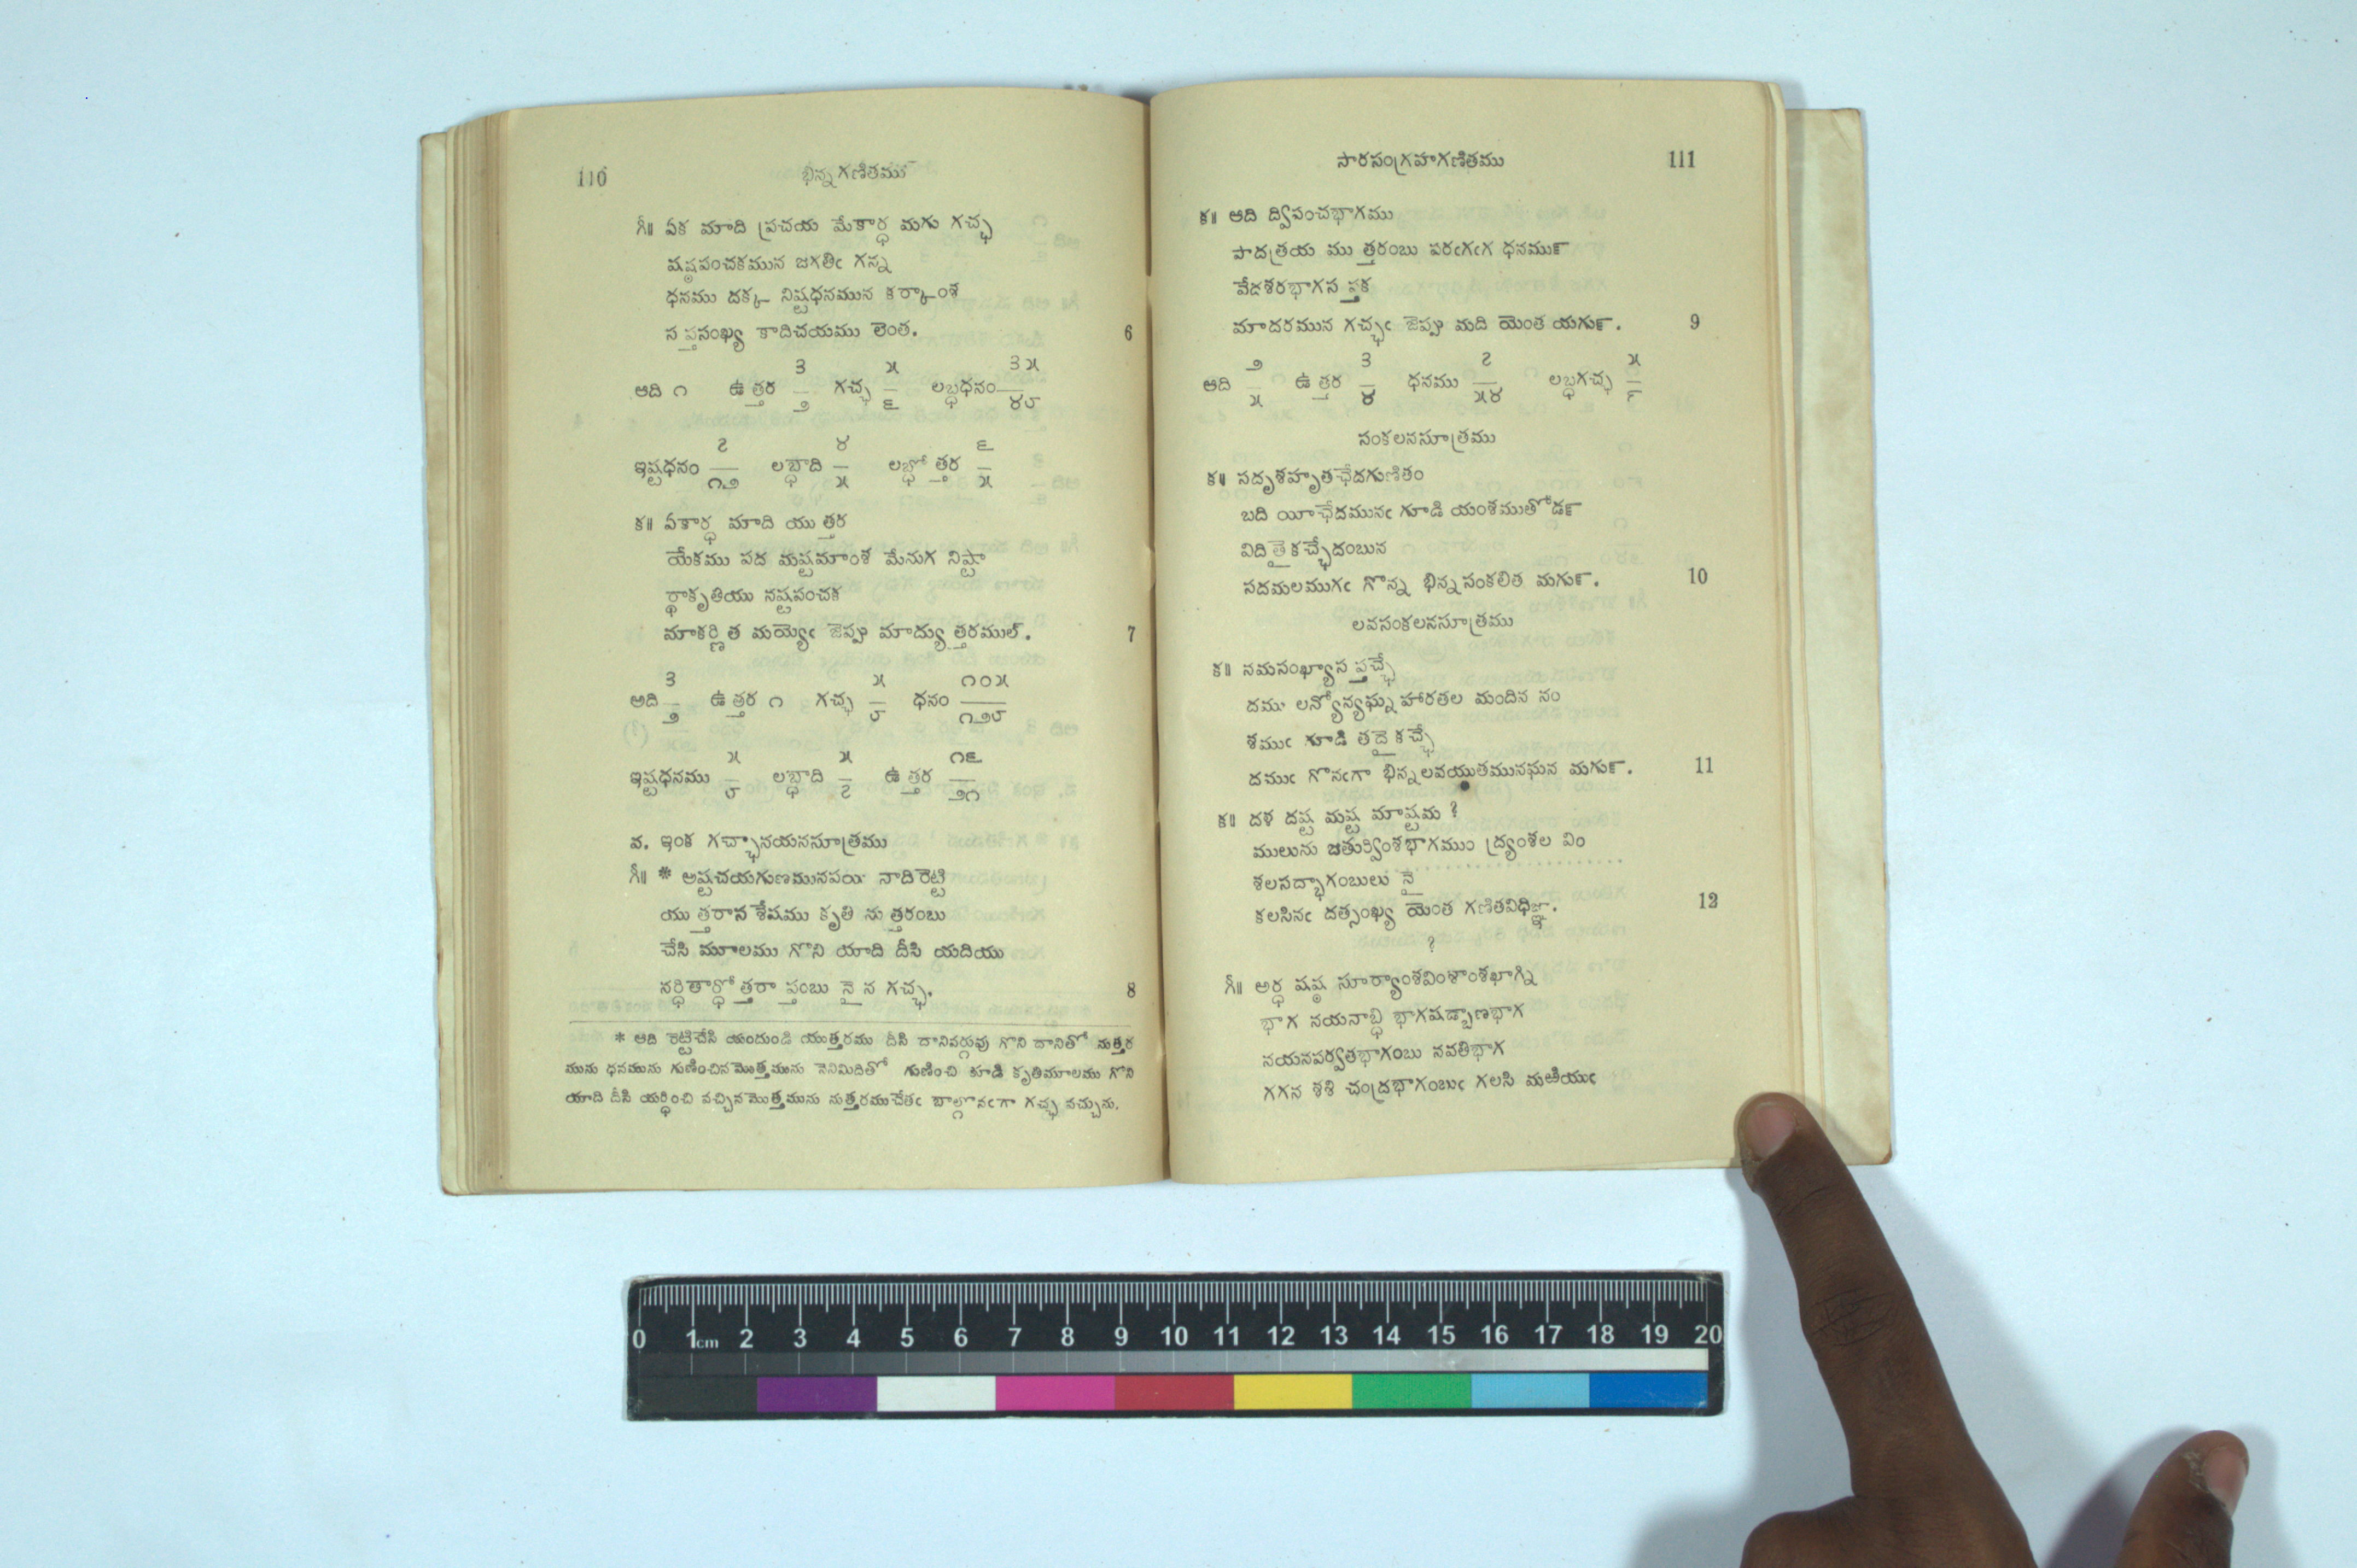 110 భిన్నగణితము
గీ॥ ఏక మాది ప్రచయ మేకార్ధ మగు గచ్ఛ
షష్ఠపంచకమున జగతిఁ గన్న
ధనము దక్క నిష్టధనమున కర్కాంశ
సప్తసంఖ్య కాదిచయము లెంత. 6
ఆది ౧ ఉత్తర ౩/౨ గచ్ఛ ౫/౬ లబ్ధధనం ౩౫/౪౮
ఇష్టధనం ౭/౧౨ లబ్ధాది ౪/౫ లబ్ధోత్తర ౬/౫
క॥ ఏకార్ధ మాది యుత్తర
యేకము పద మష్టమాంశ మేనుగ నిష్టా
ర్థాకృతియు నష్టపంచక
మాకర్ణిత మయ్యెఁ జెప్పు మాద్యుత్తరముల్. 7
ఆది ౩/౨ ఉత్తర ౧ గచ్ఛ ౫/౮ ధనం ౧౦౫/౧౨౮
ఇష్టధనము ౫/౮ లబ్ధాది ౫/౭ ఉత్తర ౧౬/౨౧
వ. ఇంక గచ్ఛానయనసూత్రము
గీ॥ * అష్టచయగుణమునపయి నాది రెట్టి
యుత్తరాన శేషము కృతి నుత్తరంబు
చేసి మూలము గొని యాది దీసి యదియు
నర్ధితార్ధోత్తరాప్తంబు నైన గచ్ఛ. 8
* ఆది రెట్టిచేసి యందుండి యుత్తరము దీసి దానివర్గువు గొని దానితో నుత్తర
మును ధనమును గుణించినమొత్తమును నెనిమిదితో గుణించి కూడి కృతిమూలము గొని
యాది దీసి యర్ధించి వచ్చినమొత్తమును నుత్తరముచేతఁ బాల్గొనఁగా గచ్ఛ వచ్చును.
సారసంగ్రహగణితము 111
క॥ ఆది ద్విపంచభాగము
పాదత్రయ ముత్తరంబు పరఁగఁగ ధనము౯
వేదశరభాగసప్తక
మాదరమున గచ్ఛఁ జెప్పు మది యెంత యగు౯. 9
ఆది ౨/౫ ఉత్తర ౩/౪ ధనము ౭/౫౪ లబ్ధగచ్ఛ ౫/౯
సంకలనసూత్రము
క॥ సదృశహృతఛేదగుణితం
బది యీఛేదమునఁ గూడి యంశముతోడ౯
విదితైకచ్ఛేదంబున
సదమలముగఁ గొన్న భిన్నసంకలిత మగు౯. 10
లవసంకలనసూత్రము
క॥ సమసంఖ్యాసప్తచ్ఛే
దము లన్యోన్యఘ్న హారతల మందిన నం
శముఁ గూడి తదైకచ్ఛే
దముఁ గొనఁగా భిన్నలవయుతమునఘన మగు౯. 11
క॥ దశ దష్ట మష్ట మాష్టమ ?
ములును జతుర్వింశభాగముం ద్ర్యంశల విం
శలసద్భాగంబులు నై
కలసినఁ దత్సంఖ్య యెంత గణితవిధిజ్ఞా. 12
?
గీ॥ అర్ధ షష్ఠ సూర్యాంశవింశాంశఖాగ్ని
భాగ నయనాబ్ధి భాగషడ్బాణభాగ
నయనపర్వతభాగంబు నవతిభాగ
గగన శశి చంద్రభాగంబుఁ గలసి మఱియుఁ
0 1cm 2 3 4 5 6 7 8 9 10 11 12 13 14 15 16 17 18 19 20